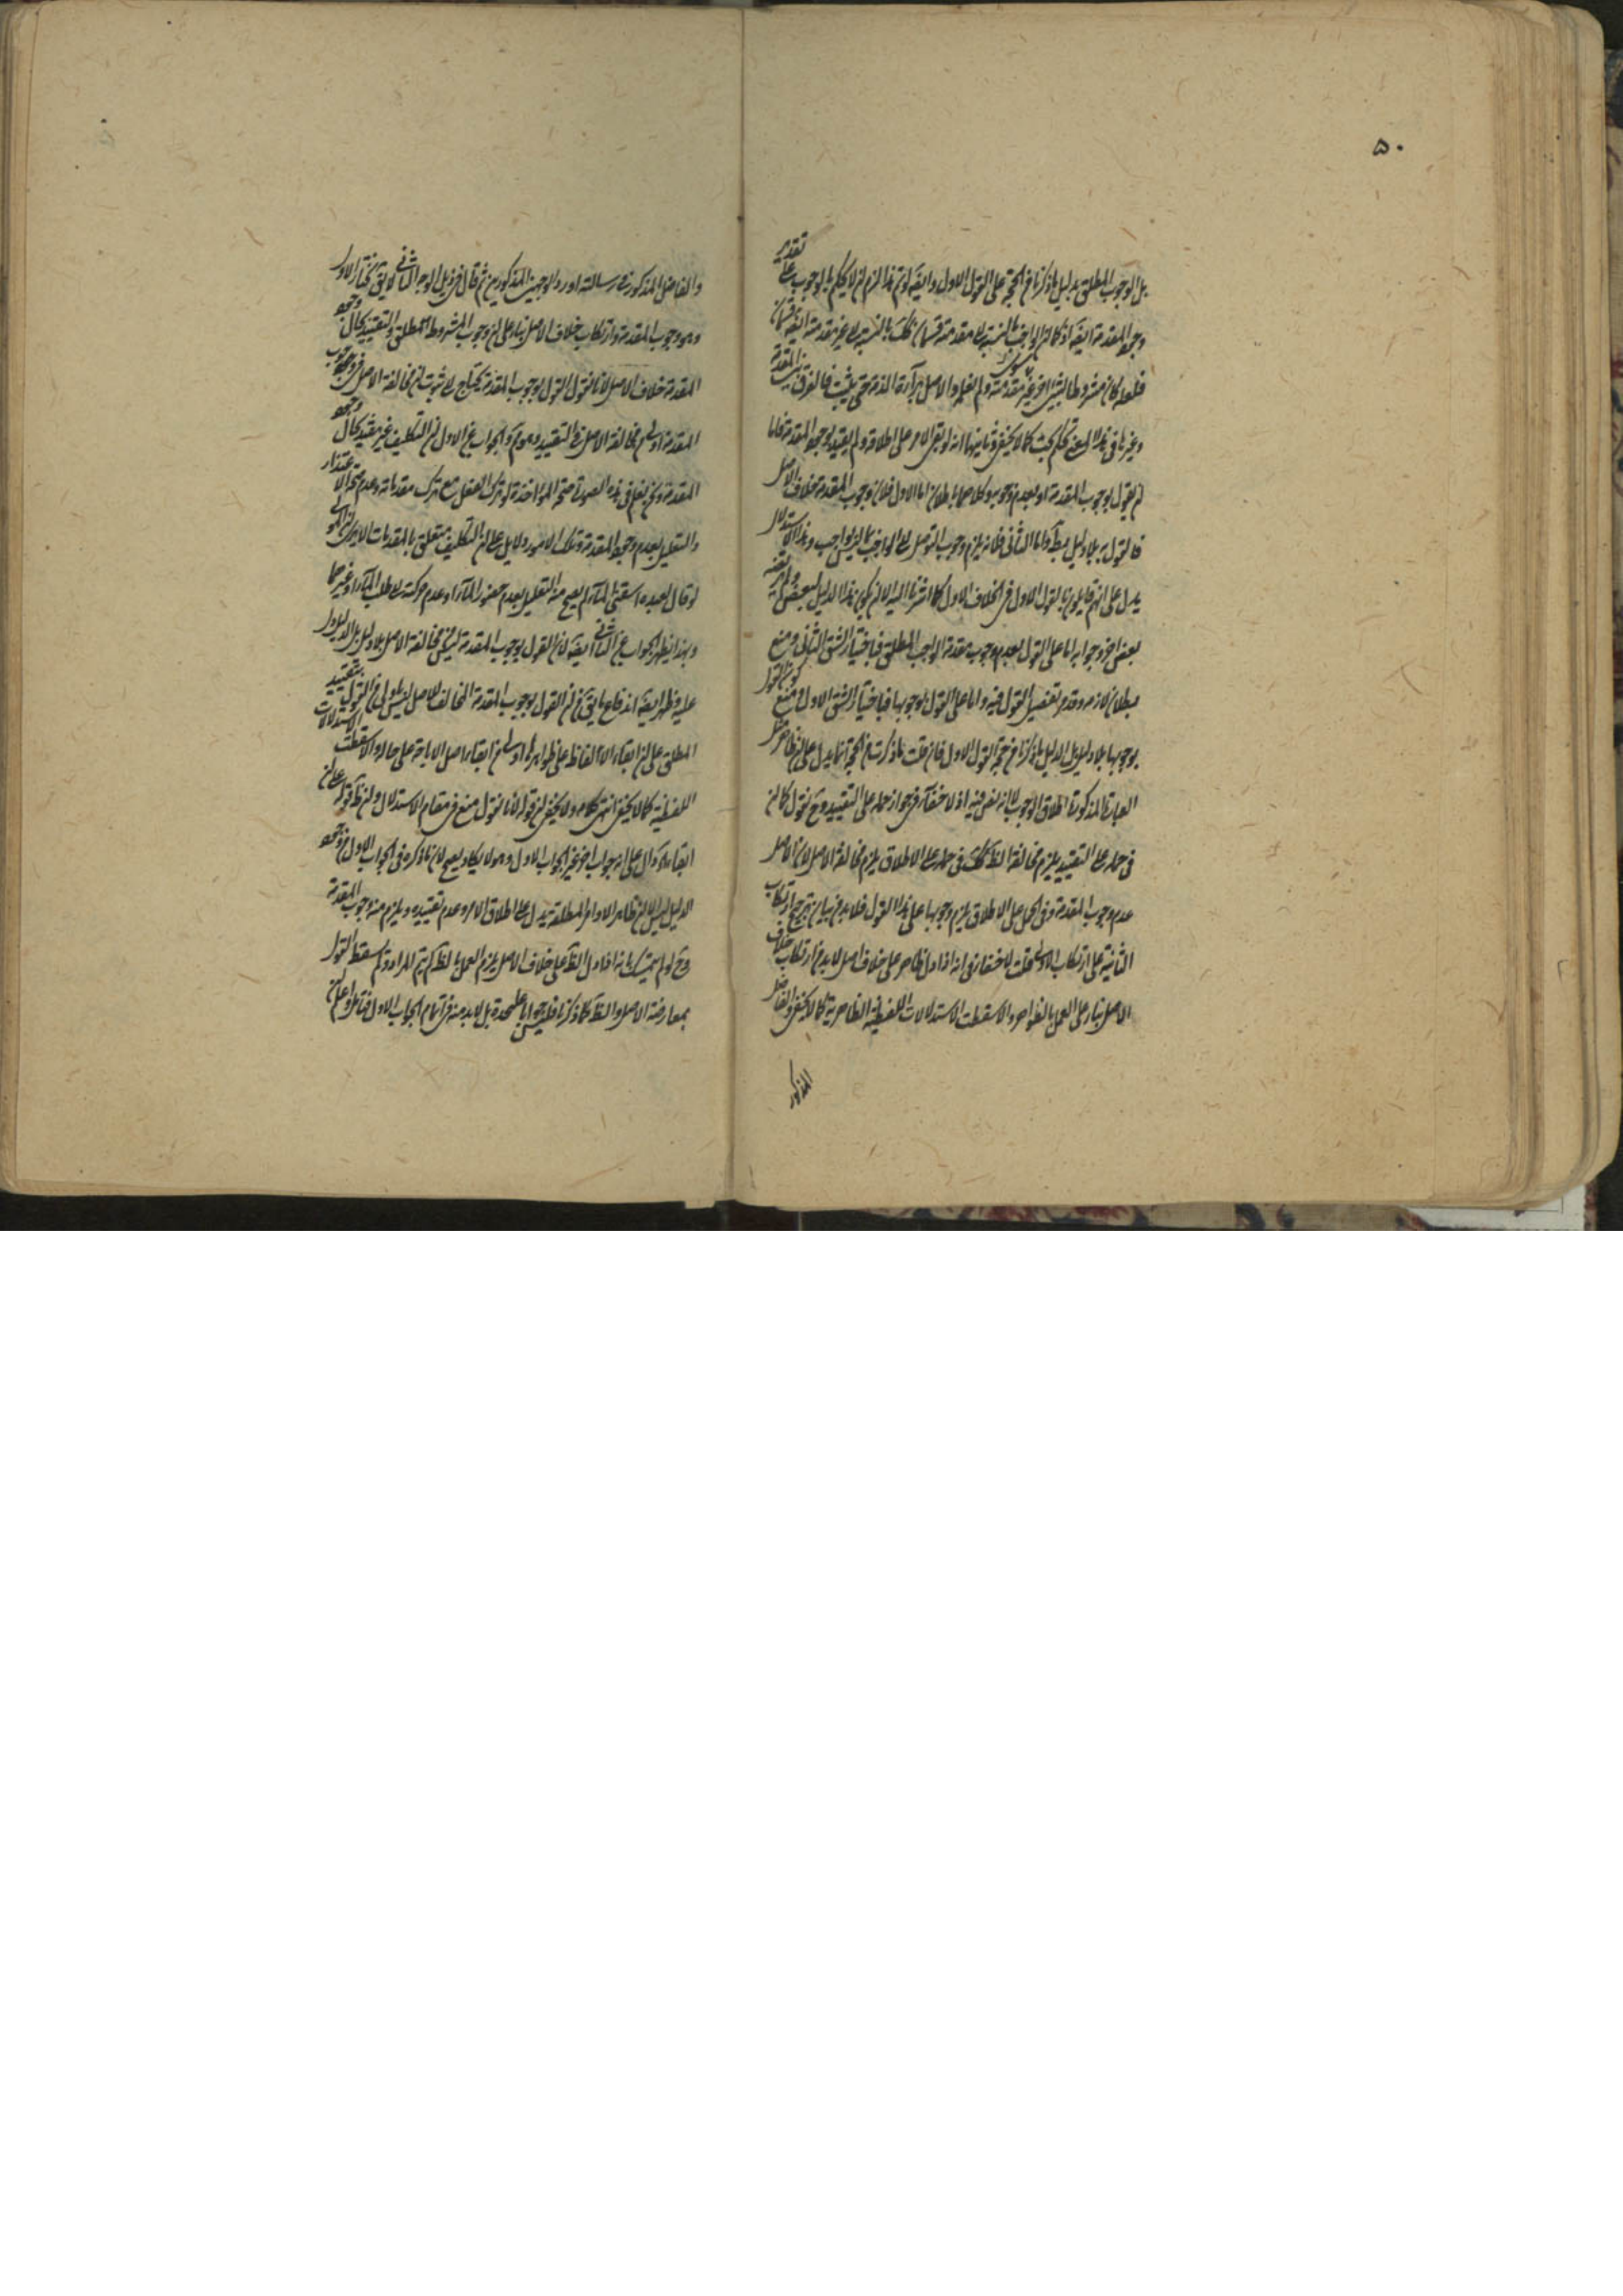 ۵۰
بل الوجوب المطلق بدليل ما ذكرنا في الحجة على القول الاول وايضا لو تم هذا لزم ان لا يحكم بالوجوب على تقدير
وجود المقدمة ايضا اذ كما ان الواجب بالنسبة الى مقدمته قسمان كك بالنسبة الى غير مقدمته ايضا قسمان
فلعله كان مشروطا بشئ اخر غير مقدمته ولم نعلمه والاصل براءة الذمة حتى يثبت فالفرق بين المقدمة
وغيرها في هذا المعنى تحكم بحت كما لا يخفى وثانيهما انه لو بقى الامر على اطلاقه ولم يقيد بوجود المقدمة فاما
ان يقول بوجوب المقدمة او بعدم وجوبه وكلاهما باطلان اما الاول فلان وجوب المقدمة خلاف الاصل
فالقول به بلا دليل بط واما الثاني فلانه يلزم وجوب التوصل الى الواجب بما ليس بواجب وهذا الاستدلال
يدل على انهم قايلون بالقول الاول في الخلاف الاول كما اشرنا اليه الا ان يكون هذا الدليل لبعض
بعض اخر وجوابه اما على القول بعدم وجوب مقدمة الواجب المطلق فباختيار الشق الثاني ومنع
بطلان لازمه وقدم تفصيل القول فيه واما على القول بوجوبها فباختيار الشق الاول ومنع كون القول
بوجوبها بلا دليل بل الدليل ما ذكرنا في حجة القول الاول فان قلت ما ذكرت في الحجة انما يدل على ان ظاهر
العبارة المذكورة اطلاق الوجوب لا انه نص فيه اذ لا خفاء في جواز حمله على التقييد وح نقول كما ان
في حمله على التقييد يلزم مخالفة الظ كك في حمله على الاطلاق يلزم مخالفة الاصل لان الاصل
عدم وجوب المقدمة وفي الحمل على الاطلاق يلزم وجوبها على هذا القول فلا بد من بيان ترجيح ارتكاب
الثانية على ارتكاب الاولى قلت لا خفاء في انه اذا دل ظاهر على خلاف اصل لا بد من ارتكاب خلاف
الاصل بناء على العمل بالظواهر والا سقطت الاستدلالات اللفظية الظاهرية كما لا يخفى والفاضل
المذكور
والفاضل المذكور في رسالته اورد الوجهين المذكورين ثم قال في ذيل الوجه الثاني لا يق نختار الاول
وهو وجوب المقدمة وارتكاب خلاف الاصل بناء على ان وجوب المشروط مطلق والتقييد بحال وجود
المقدمة خلاف الاصل لانا نقول القول بوجوب المقدمة يحتاج الى ثبوت ان مخالفة الاصل في وجوب
المقدمة اولى من مخالفة الاصل في التقييد وهو م والجواب عن الاول ان التكليف غير مقيد بحال وجود
المقدمة ونحن نعلم في هذه الصورة صحة المؤاخذة لو ترك الفعل مع ترك مقدماته وعدم صحة الاعتذار
والتعليل بعدم وجود المقدمة وتلك الامور دلايل على ان التكليف متعلق بالمقدمات الا يرى ان المولى
لو قال لعبده اسقني الماء لم يصح منه التعليل بعدم حضور الماء او عدم حركته الى طلب الماء او غيرهما
وبهذا يظهر الجواب عن الثاني ايضا لان القول بوجوب المقدمة ليس مخالفة الاصل بلا دليل بل الدليل دل
عليه وظهر ايضا اندفاع ما يق من ان القول بوجوب المقدمة المخالف للاصل ليس باولى من القول بتقييد
المطلق على ان ابقاء الالفاظ على ظواهرها اولى من ابقاء اصل الاباحة على حاله والا سقطت الاستدلالات
اللفظية كما لا يخفى انتهى كلامه ولا يخفى ان قوله لانا نقول منع في مقام الاستدلال وان ظ قوله على ان
ابقاء اه دال على انه جواب اخر غير الجواب الاول وهو لا يكاد يصح لان ما ذكره في الجواب الاول من وجود
الدليل ليس الا ان ظاهر الاوامر المطلقة يدل على اطلاق الامر وعدم تقييده ويلزم منه وجوب المقدمة
وح لو لم يتمسك بانه اذا دل الظ على خلاف الاصل يلزم العمل بالظ لم يتم المراد ولم يسقط القول
بمعارضة الاصل والظ كما ذكرنا فليس جوابا عليحدة بل لا بد منه في اتمام الجواب الاول فتامل واعلم ان